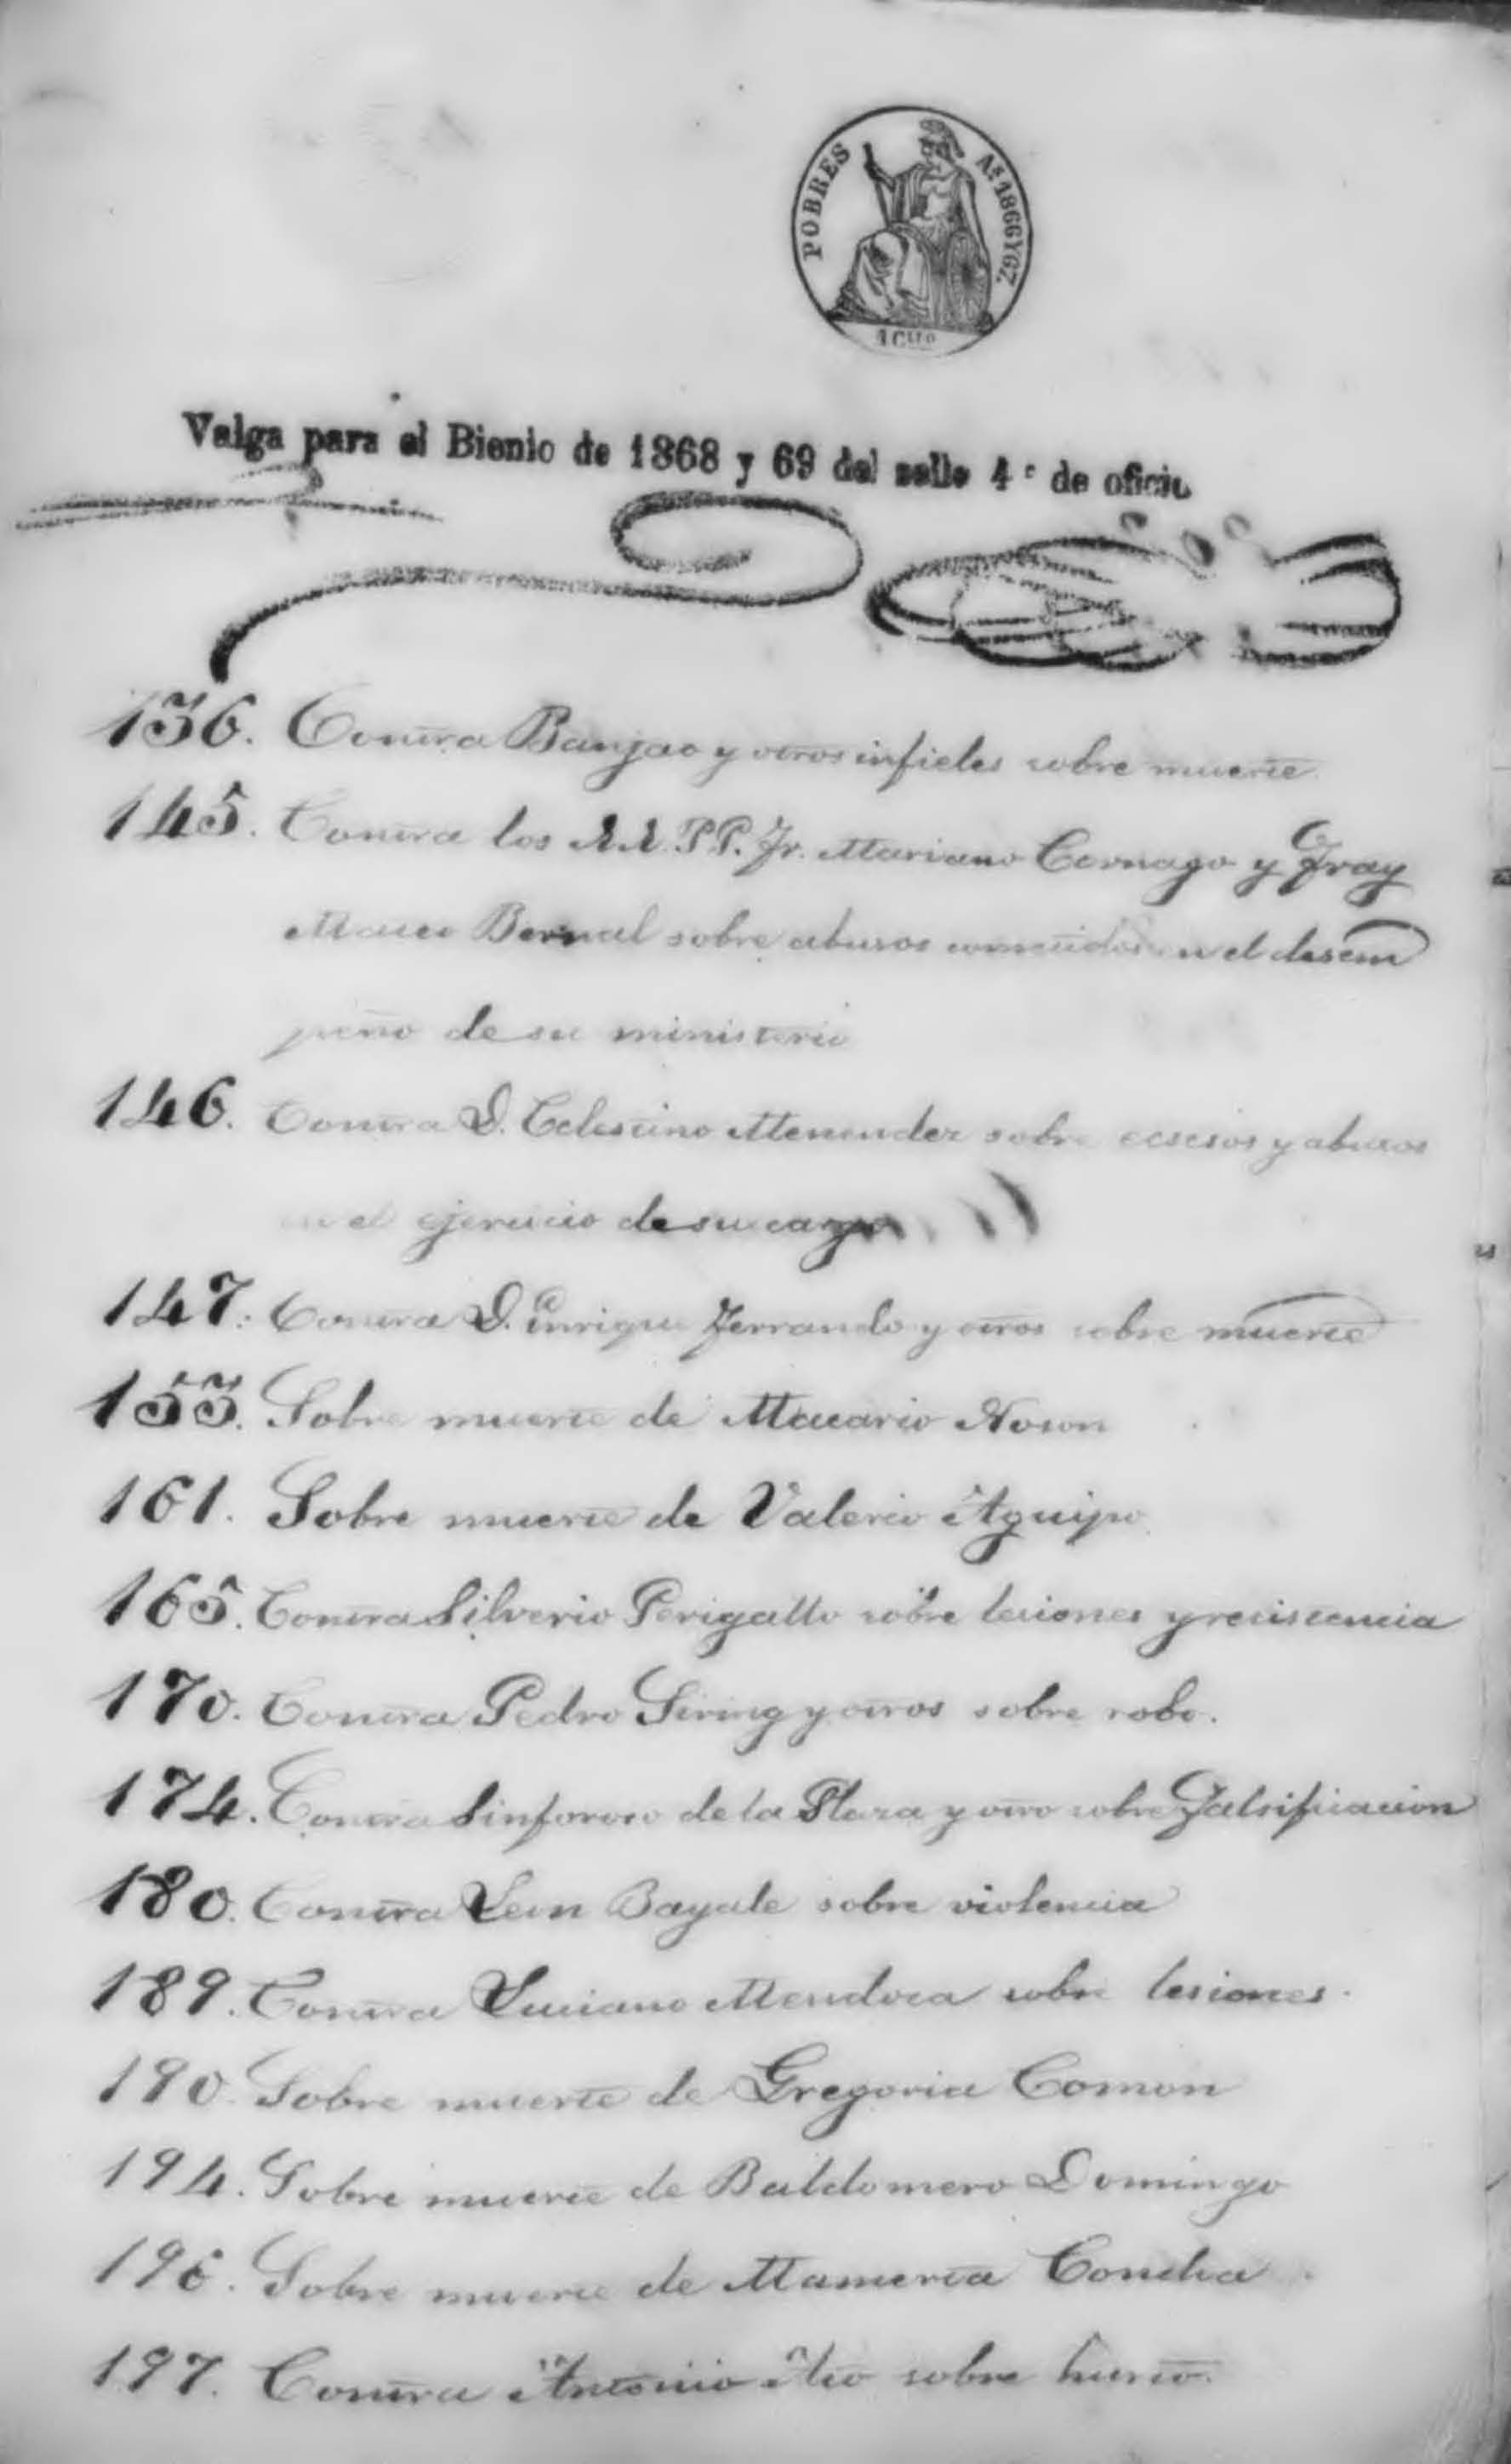 POBRES
Aˢ 1866 Y 67.
1 Cuº
Valga para el Bienio de 1868 y 69 del sello 4º de oficio
136. Contra Banjao y otros infieles sobre muerte
145. Contra los RR. PP. Fr. Mariano Cornago y Fray
Mateo Bernal sobre abusos cometidos en el desem
peño de su ministerio
146. Contra D. Celestino Menendez sobre ecsesos y abusos
en el ejercicio de su cargo
147. Contra D. Enrique Ferrando y otros sobre muerte
153. Sobre muerte de Macario Noson
161. Sobre muerte de Valerio Aguipo
165. Contra Silverio Perigallo sobre lesiones y resistencia
170. Contra Pedro Siring y otros sobre robo.
174. Contra Sinforoso de la Plaza y otro sobre Falsificacion
180. Contra Leon Bayale sobre violencia
189. Contra Luciano Mendoza sobre lesiones.
190. Sobre muerte de Gregoria Comon
194. Sobre muerte de Baldomero Domingo
196. Sobre muerte de Mamerta Concha
197. Contra Antonio sobre hurto.